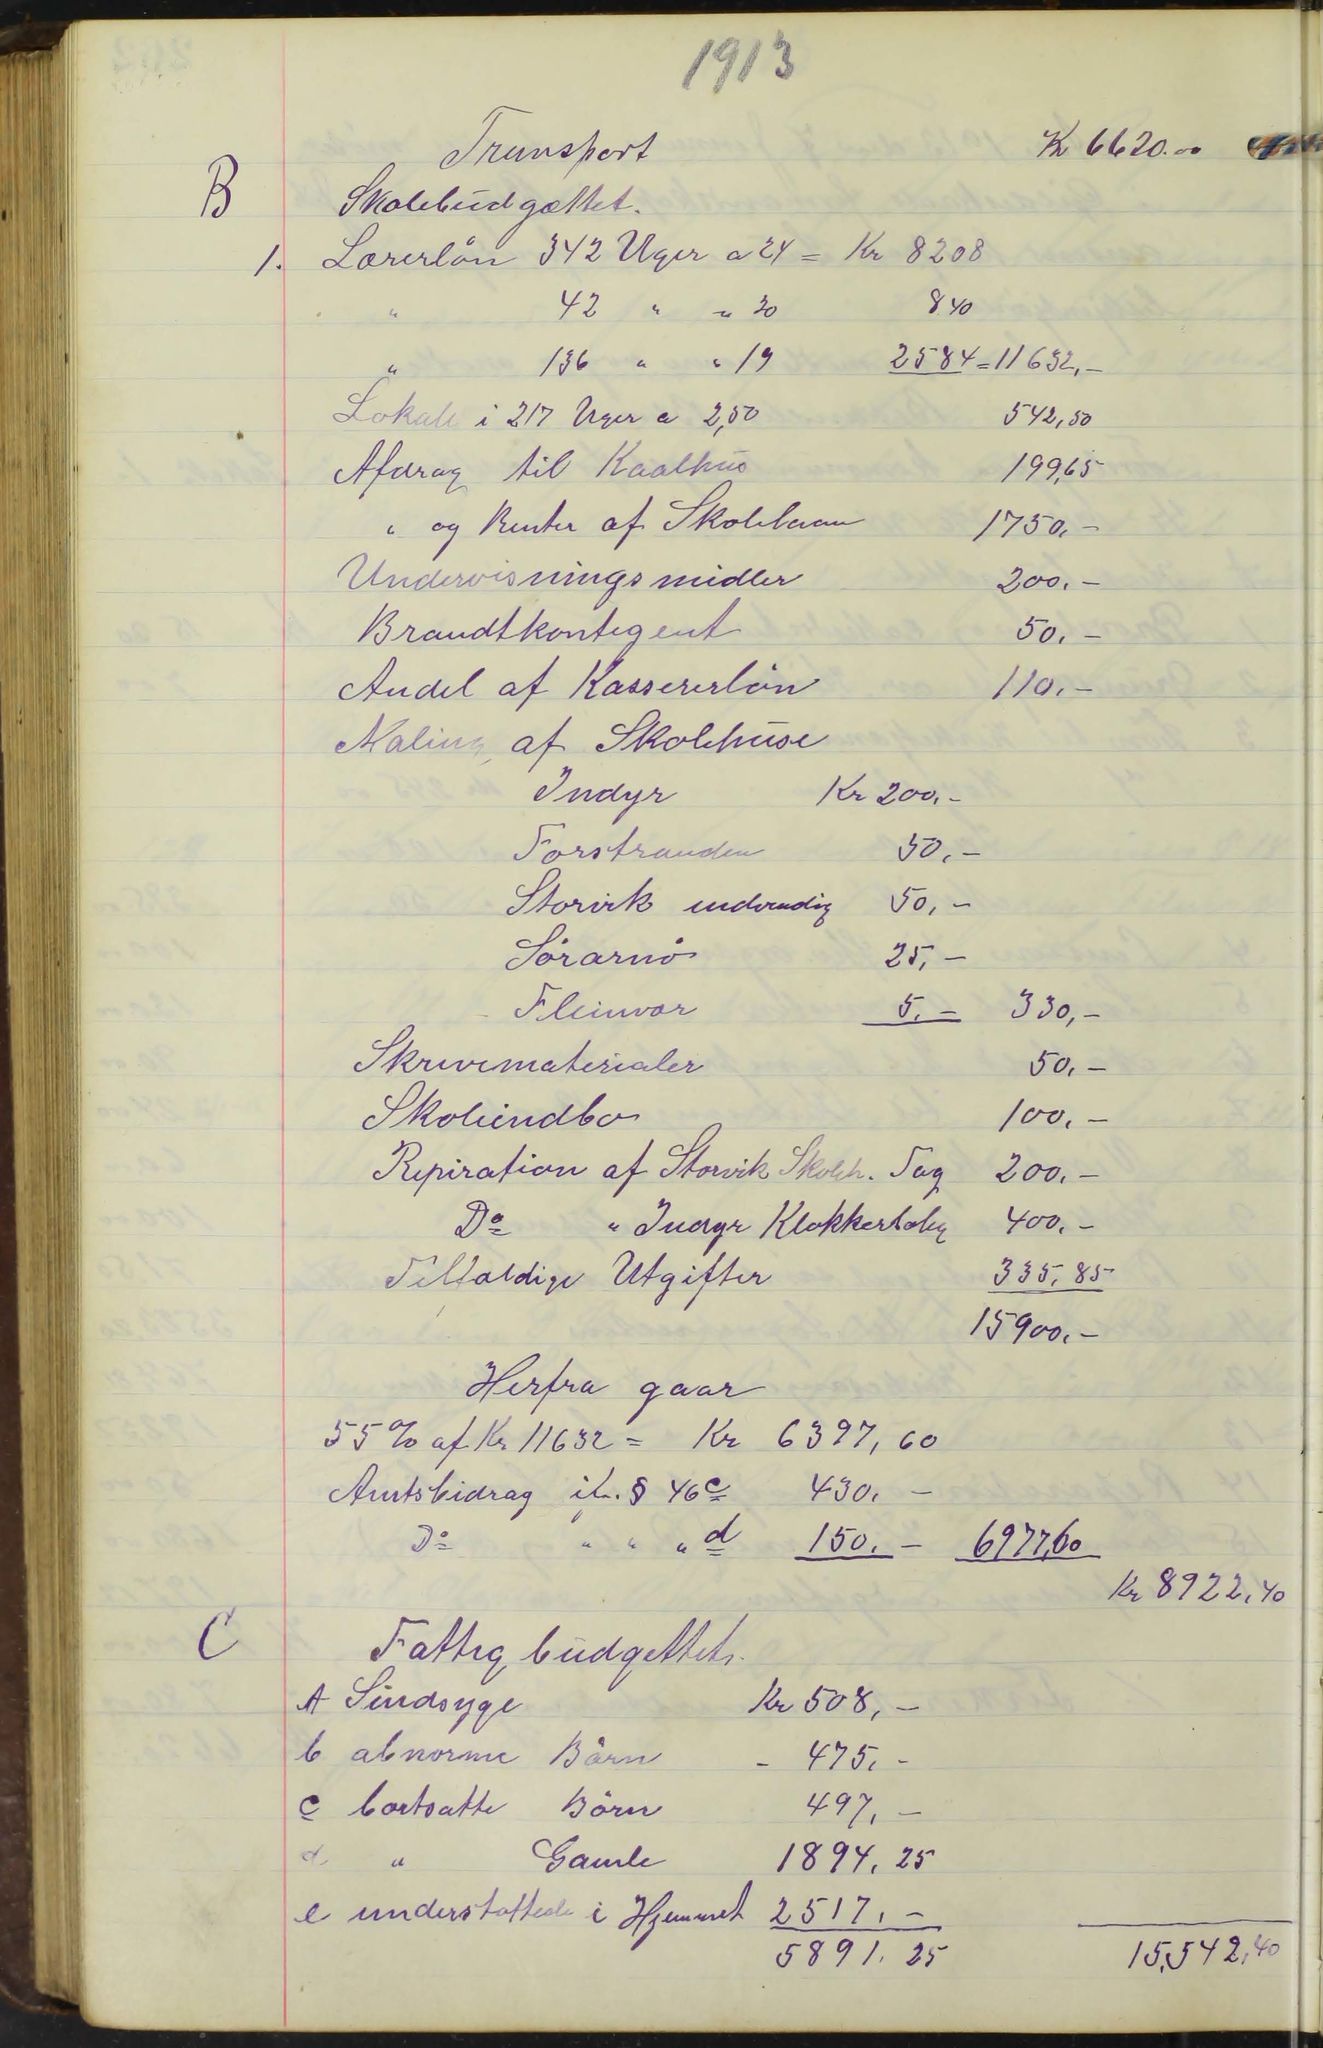 1913
Transport Kr 6620.00
B Skolebudgættet.
1. Lærerlön 342 Uger a 24 = Kr 8208
" 42 " " 20 840
" 136 " " 19 2584 = 11632,-
Lokale i 217 Uger a 2,50 542,50
Afdrag til Kaalhus 199,65
" og Renter af Skolelaan 1750,-
Undervisningsmidler 200,-
Brandtkontigent 50,-
Andel af Kassererlön 110,-
Maling af Skolehuse
Indyr Kr 200,-
Forstranden 50,-
Storvik indvendig 50,-
Sörarnö 25,-
Fleinvær 5,- 330,-
Skrivematerialer 50,-
Skoleindbo 100,-
Repiration af Storvik Skoleh. Tag 200,-
Do " Indyr Klokkerbolig 400,-
Tilfældige Utgifter 335,85
15900,-
Herfra gaar
55% af Kr 11632 = Kr 6397,60
Amtsbidrag § 46 c 430,-
Do " " " d 150,- 6977,60
Kr 8922,40
C Fattigbudgettet.
A Sindsyge Kr 508,-
b abnorme Börn - 475,-
c bortsatte Börn 497,-
d " Gamle 1894,25
e understöttede i Hjemmet 2517,-
5891,25 15,542,40